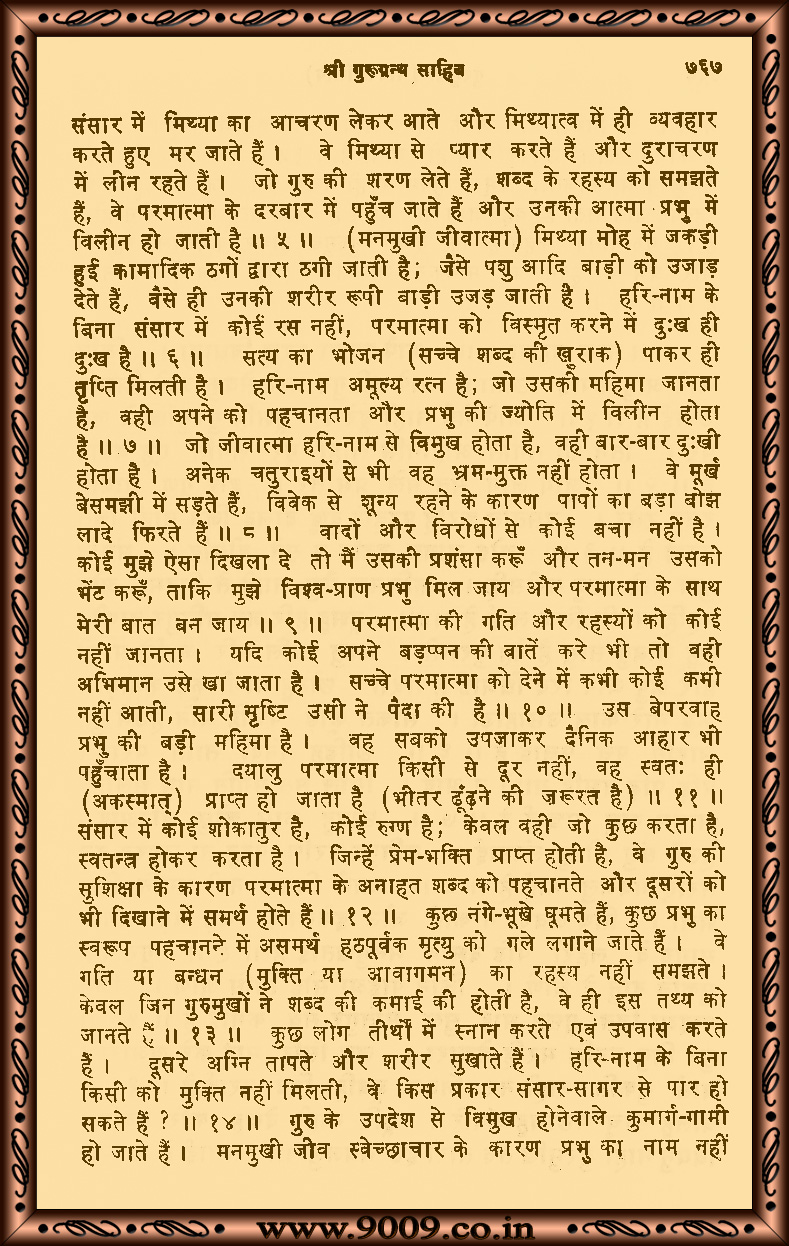 श्री गुरूग्रन्थ साहिब ७६७
संसार में मिथ्या का आचरण लेकर आते और मिथ्यात्व में ही व्यवहार
करते हुए मर जाते हैं। वे मिथ्या से प्यार करते हैं और दुराचरण
में लीन रहते हैं। जो गुरु की शरण लेते हैं, शब्द के रहस्य को समझते
हैं, वे परमात्मा के दरबार में पहुँच जाते हैं और उनकी आत्मा प्रभु में
विलीन हो जाती है॥ ५ ॥ (मनमुखी जीवात्मा) मिथ्या मोह में जकड़ी
हुई कामादिक ठगों द्वारा ठगी जाती है; जैसे पशु आदि बाड़ी को उजाड़
देते हैं, वैसे ही उनकी शरीर रूपी बाड़ी उजड़ जाती है। हरि-नाम के
बिना संसार में कोई रस नहीं, परमात्मा को विस्मृत करने में दुःख ही
दुःख है॥ ६ ॥ सत्य का भोजन (सच्चे शब्द की खुराक) पाकर ही
तृप्ति मिलती है। हरि-नाम अमूल्य रत्न है; जो उसकी महिमा जानता
है, वही अपने को पहचानता और प्रभु की ज्योति में विलीन होता
है॥ ७ ॥ जो जीवात्मा हरि-नाम से विमुख होता है, वही बार-बार दुःखी
होता है। अनेक चतुराइयों से भी वह भ्रम-मुक्त नहीं होता। वे मूर्ख
बेसमझी में सड़ते हैं, विवेक से शून्य रहने के कारण पापों का बड़ा बोझ
लादे फिरते हैं॥ ८ ॥ वादों और विरोधों से कोई बचा नहीं है।
कोई मुझे ऐसा दिखला दे तो मैं उसकी प्रशंसा करूँ और तन-मन उसको
भेंट करूँ, ताकि मुझे विश्व-प्राण प्रभु मिल जाय और परमात्मा के साथ
मेरी बात बन जाय॥ ९ ॥ परमात्मा की गति और रहस्यों को कोई
नहीं जानता। यदि कोई अपने बड़प्पन की बातें करे भी तो वही
अभिमान उसे खा जाता है। सच्चे परमात्मा को देने में कभी कोई कमी
नहीं आती, सारी सृष्टि उसी ने पैदा की है॥ १० ॥ उस बेपरवाह
प्रभु की बड़ी महिमा है। वह सबको उपजाकर दैनिक आहार भी
पहुँचाता है। दयालु परमात्मा किसी से दूर नहीं, वह स्वतः ही
(अकस्मात्) प्राप्त हो जाता है (भीतर ढूंढ़ने की जरूरत है)॥ ११ ॥
संसार में कोई शोकातुर है, कोई रुग्ण है; केवल वही जो कुछ करता है,
स्वतन्त्र होकर करता है। जिन्हें प्रेम-भक्ति प्राप्त होती है, वे गुरु की
सुशिक्षा के कारण परमात्मा के अनाहत शब्द को पहचानते और दूसरों को
भी दिखाने में समर्थ होते हैं॥ १२ ॥ कुछ नंगे-भूखे घूमते हैं, कुछ प्रभु का
स्वरूप पहचानने में असमर्थ हठपूर्वक मृत्यु को गले लगाने जाते हैं। वे
गति या बन्धन (मुक्ति या आवागमन) का रहस्य नहीं समझते।
केवल जिन गुरुमुखों ने शब्द की कमाई की होती है, वे ही इस तथ्य को
जानते हैं॥ १३ ॥ कुछ लोग तीर्थों में स्नान करते एवं उपवास करते
हैं। दूसरे अग्नि तापते और शरीर सुखाते हैं। हरि-नाम के बिना
किसी को मुक्ति नहीं मिलती, वे किस प्रकार संसार-सागर से पार हो
सकते हैं ? ॥ १४ ॥ गुरु के उपदेश से विमुख होनेवाले कुमार्ग-गामी
हो जाते हैं। मनमुखी जीव स्वेच्छाचार के कारण प्रभु का नाम नहीं
www.9009.co.in